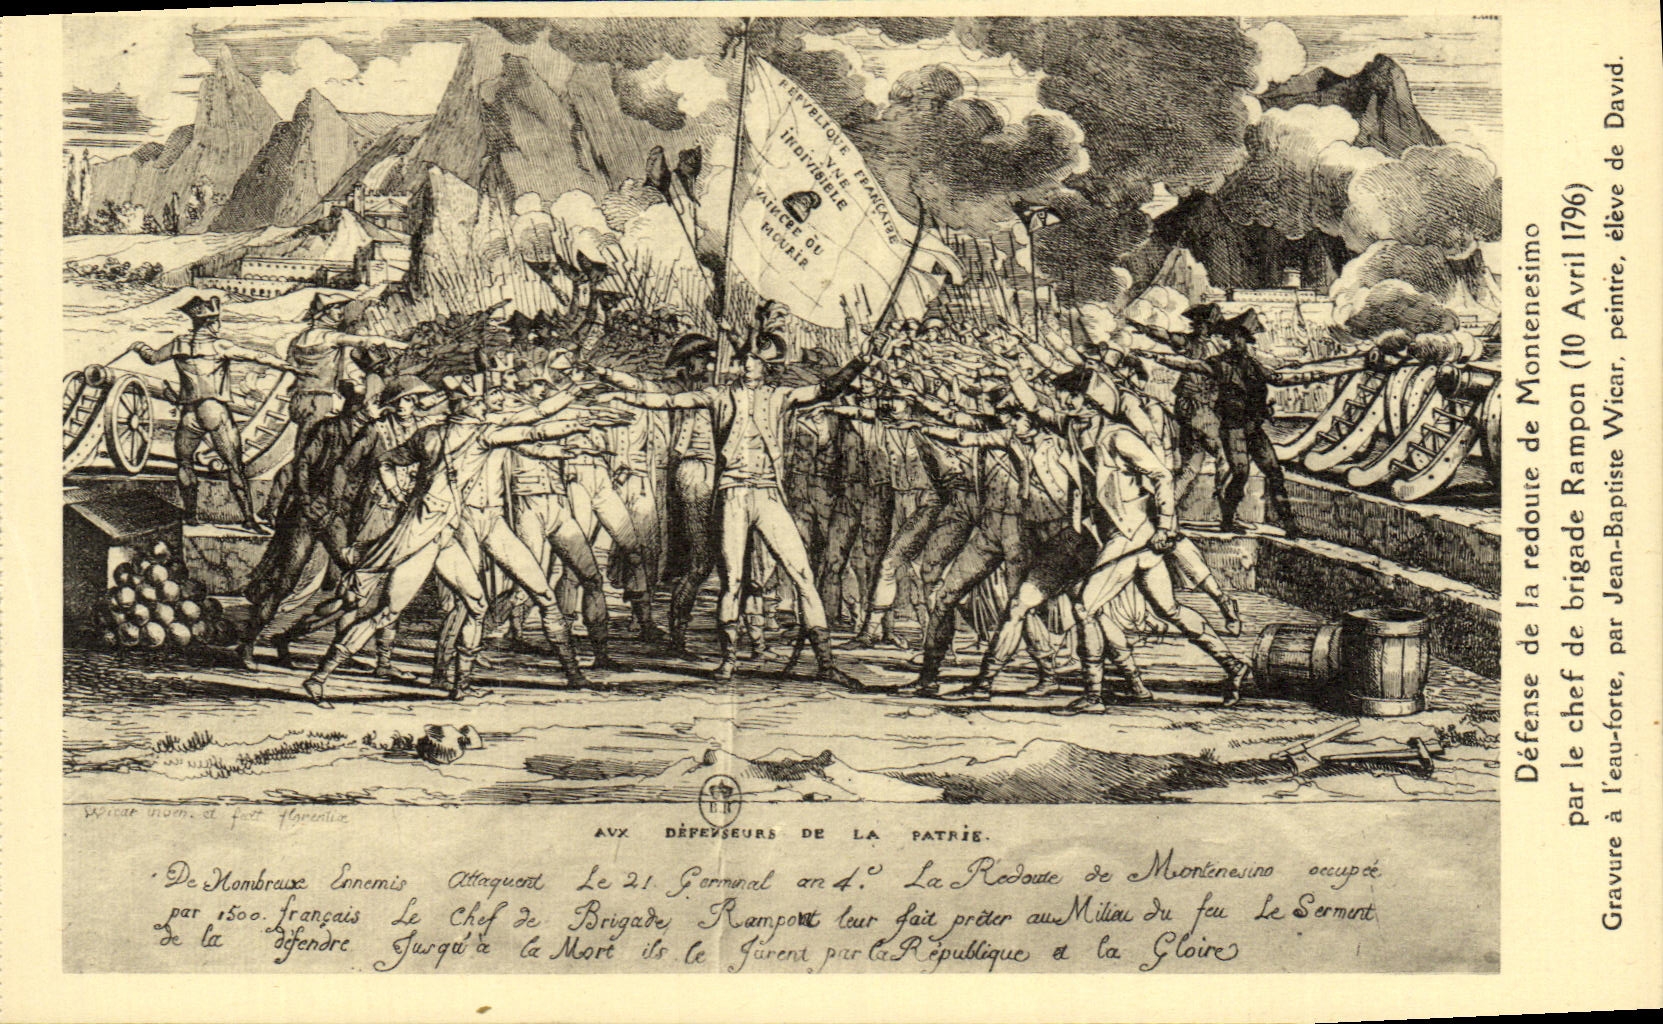 REPVBLIQUE FRANÇAISE
VNE
INDIVISIBLE
VAINCRE OU
MOURIR
Wicar inven. et fecit florentiæ
BR
AUX DÉFENSEURS DE LA PATRIE.
De Nombreux Ennemis Attaquent Le 21. Germinal an 4.e La Redoute de Montenesino occupée
par 1500. français Le Chef de Brigade Rampont leur fait prêter au Milieu du feu Le Serment
de la défendre Jusqu'à la Mort ils le Jurent par la République et la Gloire
Défense de la redoute de Montenesimo
par le chef de brigade Rampon (10 Avril 1796)
Gravure à l'eau-forte, par Jean-Baptiste Wicar, peintre, élève de David.